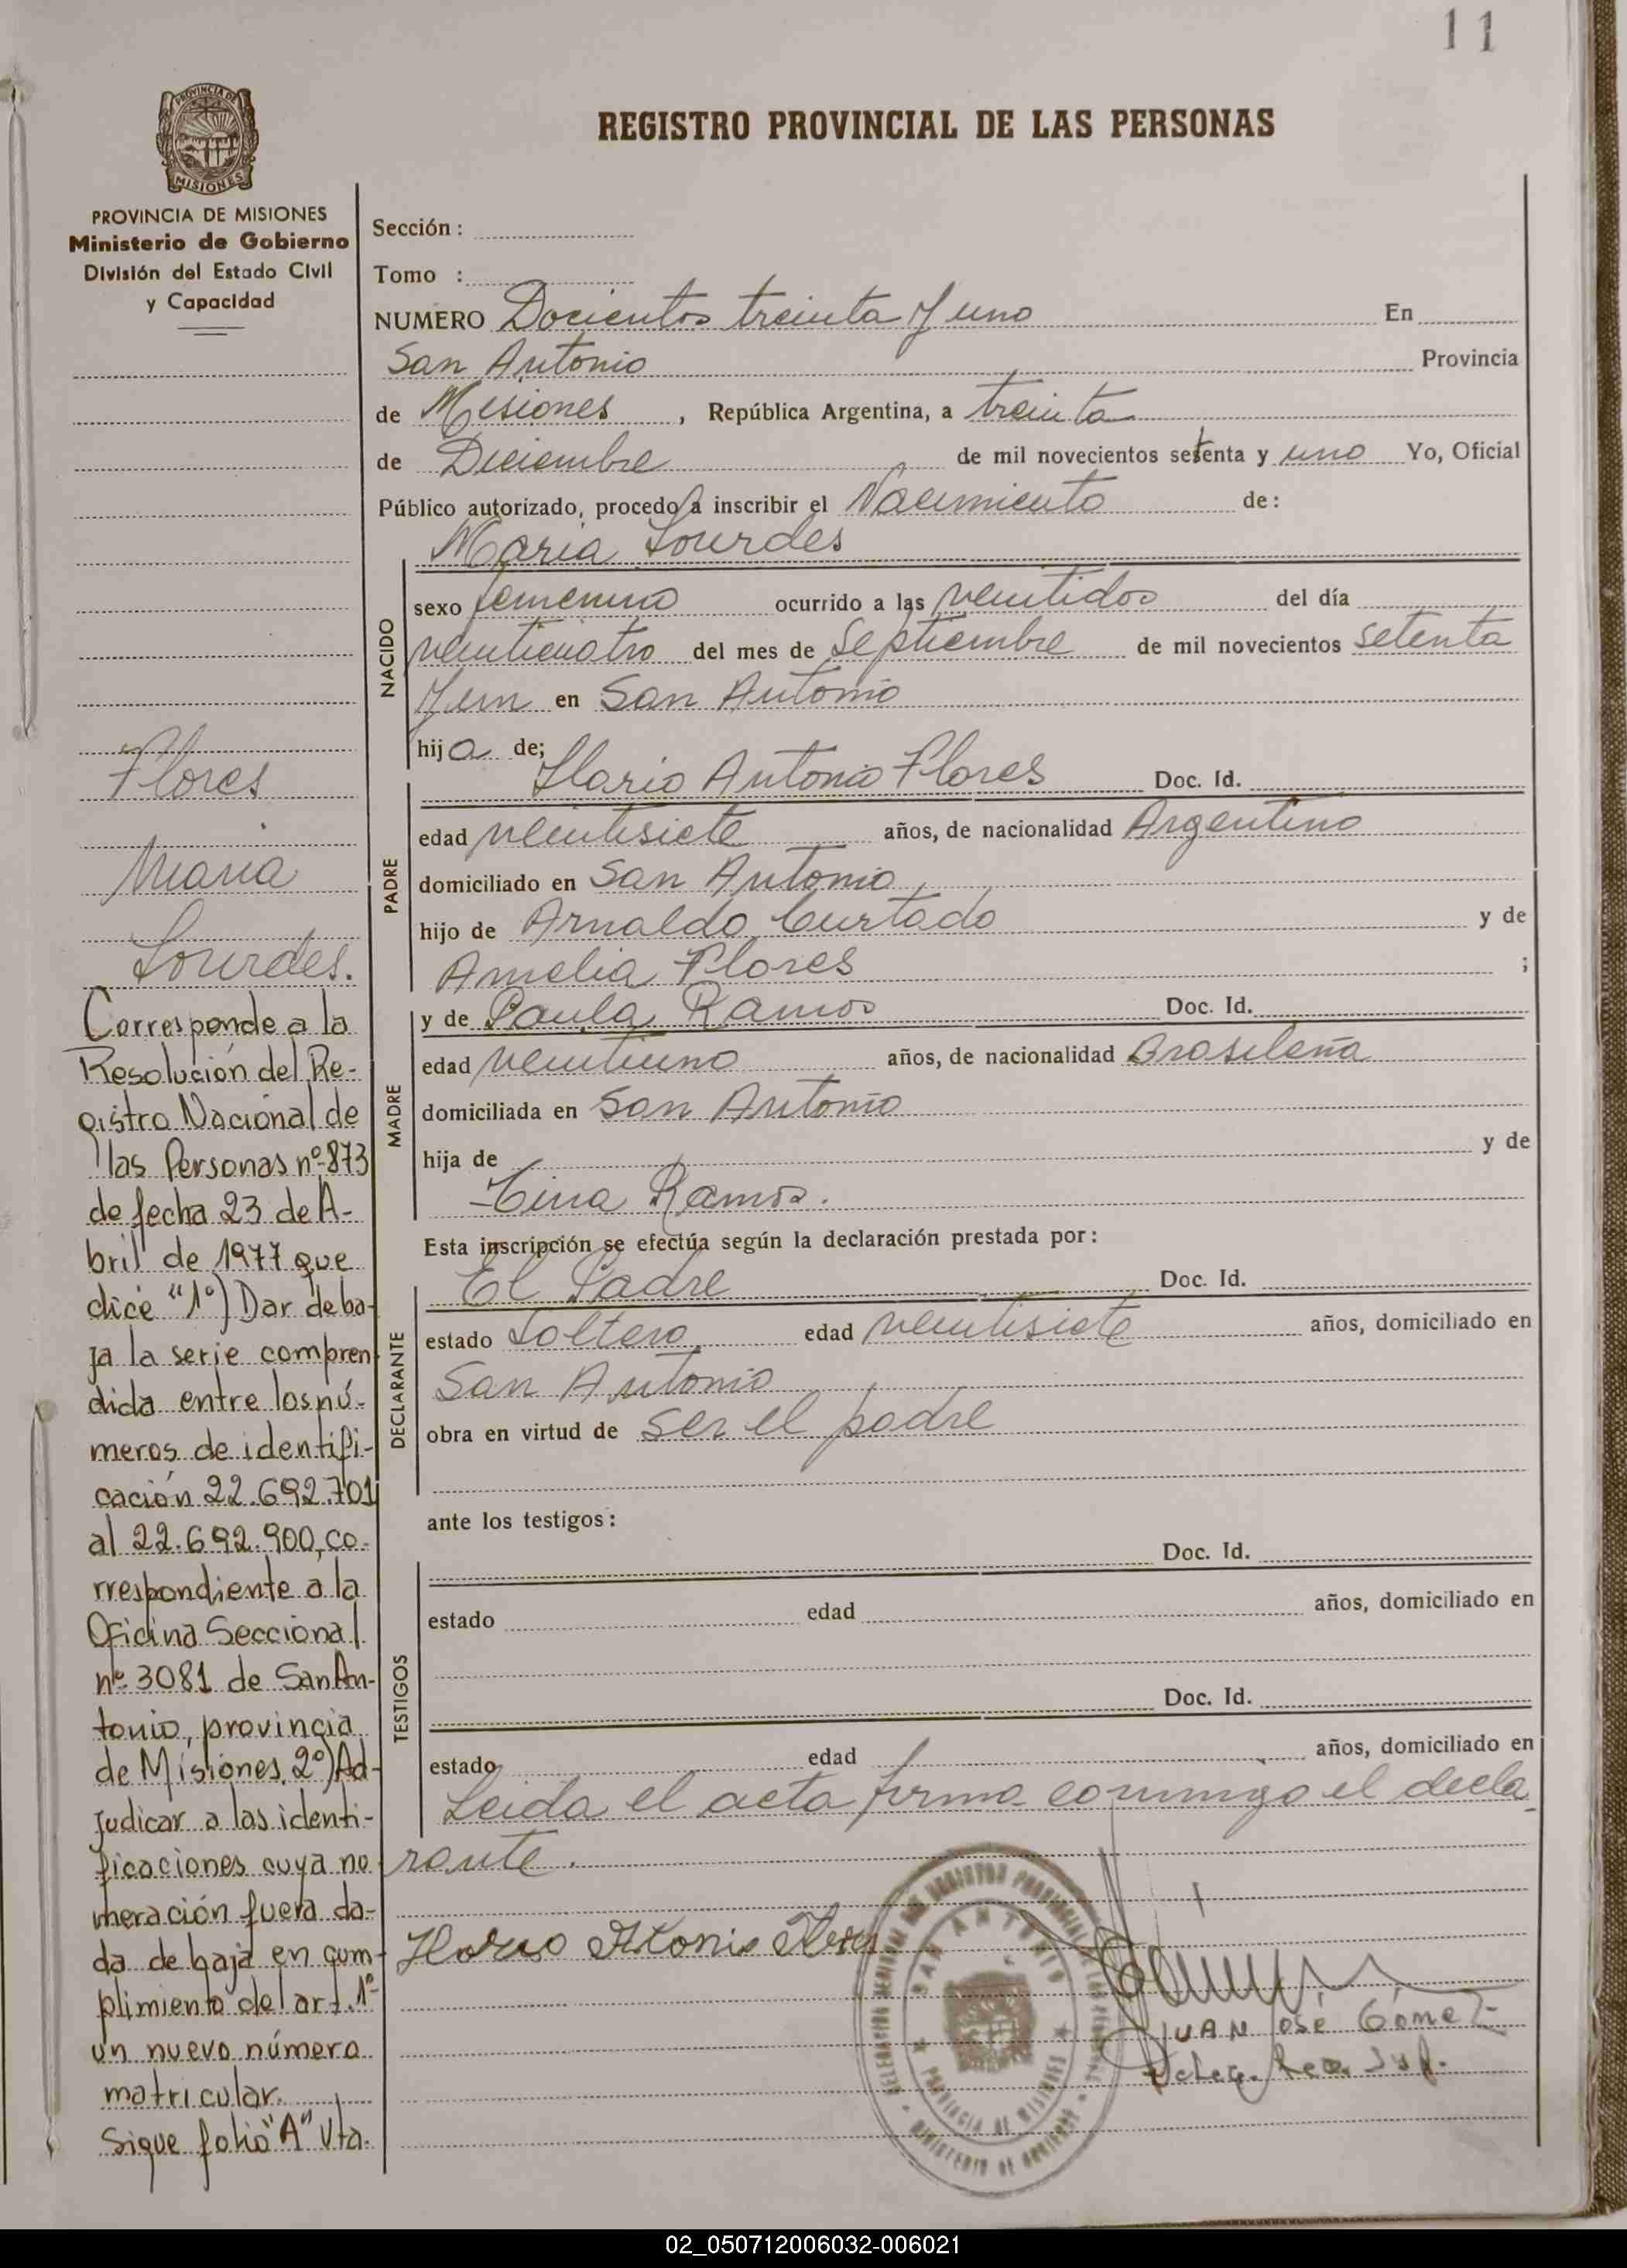 11
REGISTRO PROVINCIAL DE LAS PERSONAS
PROVINCIA DE MISIONES
PROVINCIA DE MISIONES
Ministerio de Gobierno
División del Estado Civil
y Capacidad
Flores
Maria
Lourdes.
Corresponde a la
Resolución del Re-
gistro Nacional de
las Personas nº 873
de fecha 23 de A-
bril de 1977 que
dice "1º) Dar de ba-
ja la serie compren
dida entre los nú-
meros de identifi-
cación 22.692.701
al 22.692.900, co-
rrespondiente a la
Oficina Seccional
nº 3081 de San An-
tonio, provincia
de Misiones. 2º) Ad-
judicar a las identi-
ficaciones cuya nu
meración fuera da-
da de baja en cum-
plimiento del art. 1º
un nuevo número
matricular.
Sigue folio "A" Vta.
Sección :
Tomo :
NUMERO Docientos treinta y uno En
San Antonio Provincia
de Misiones, República Argentina, a treinta
de Diciembre de mil novecientos setenta y uno Yo, Oficial
Público autorizado, procedo a inscribir el Nacimiento de:
Maria Lourdes
NACIDO
sexo femenino ocurrido a las veintidos del día
veinticuatro del mes de Septiembre de mil novecientos setenta
y un en San Antonio
hija de;
PADRE
Ilario Antonio Flores Doc. Id.
edad veintisiete años, de nacionalidad Argentino
domiciliado en San Antonio
hijo de Arnaldo Curtado y de
Amelia Flores ;
MADRE
y de Paula Ramos Doc. Id.
edad veintiuno años, de nacionalidad Brasileña
domiciliada en San Antonio
hija de y de
Ramos.
Esta inscripción se efectúa según la declaración prestada por:
DECLARANTE
El Padre Doc. Id.
estado Soltero edad veintisiete años, domiciliado en
San Antonio
obra en virtud de ser el padre
ante los testigos:
TESTIGOS
Doc. Id.
estado edad años, domiciliado en
Doc. Id.
estado edad años, domiciliado en
Leida el acta firma conmigo el decla
rante.
SAN ANTONIO
PROVINCIA DE MISIONES
MINISTERIO DE GOBIERNO
JUAN JOSÉ GÓMEZ
02_050712006032-006021